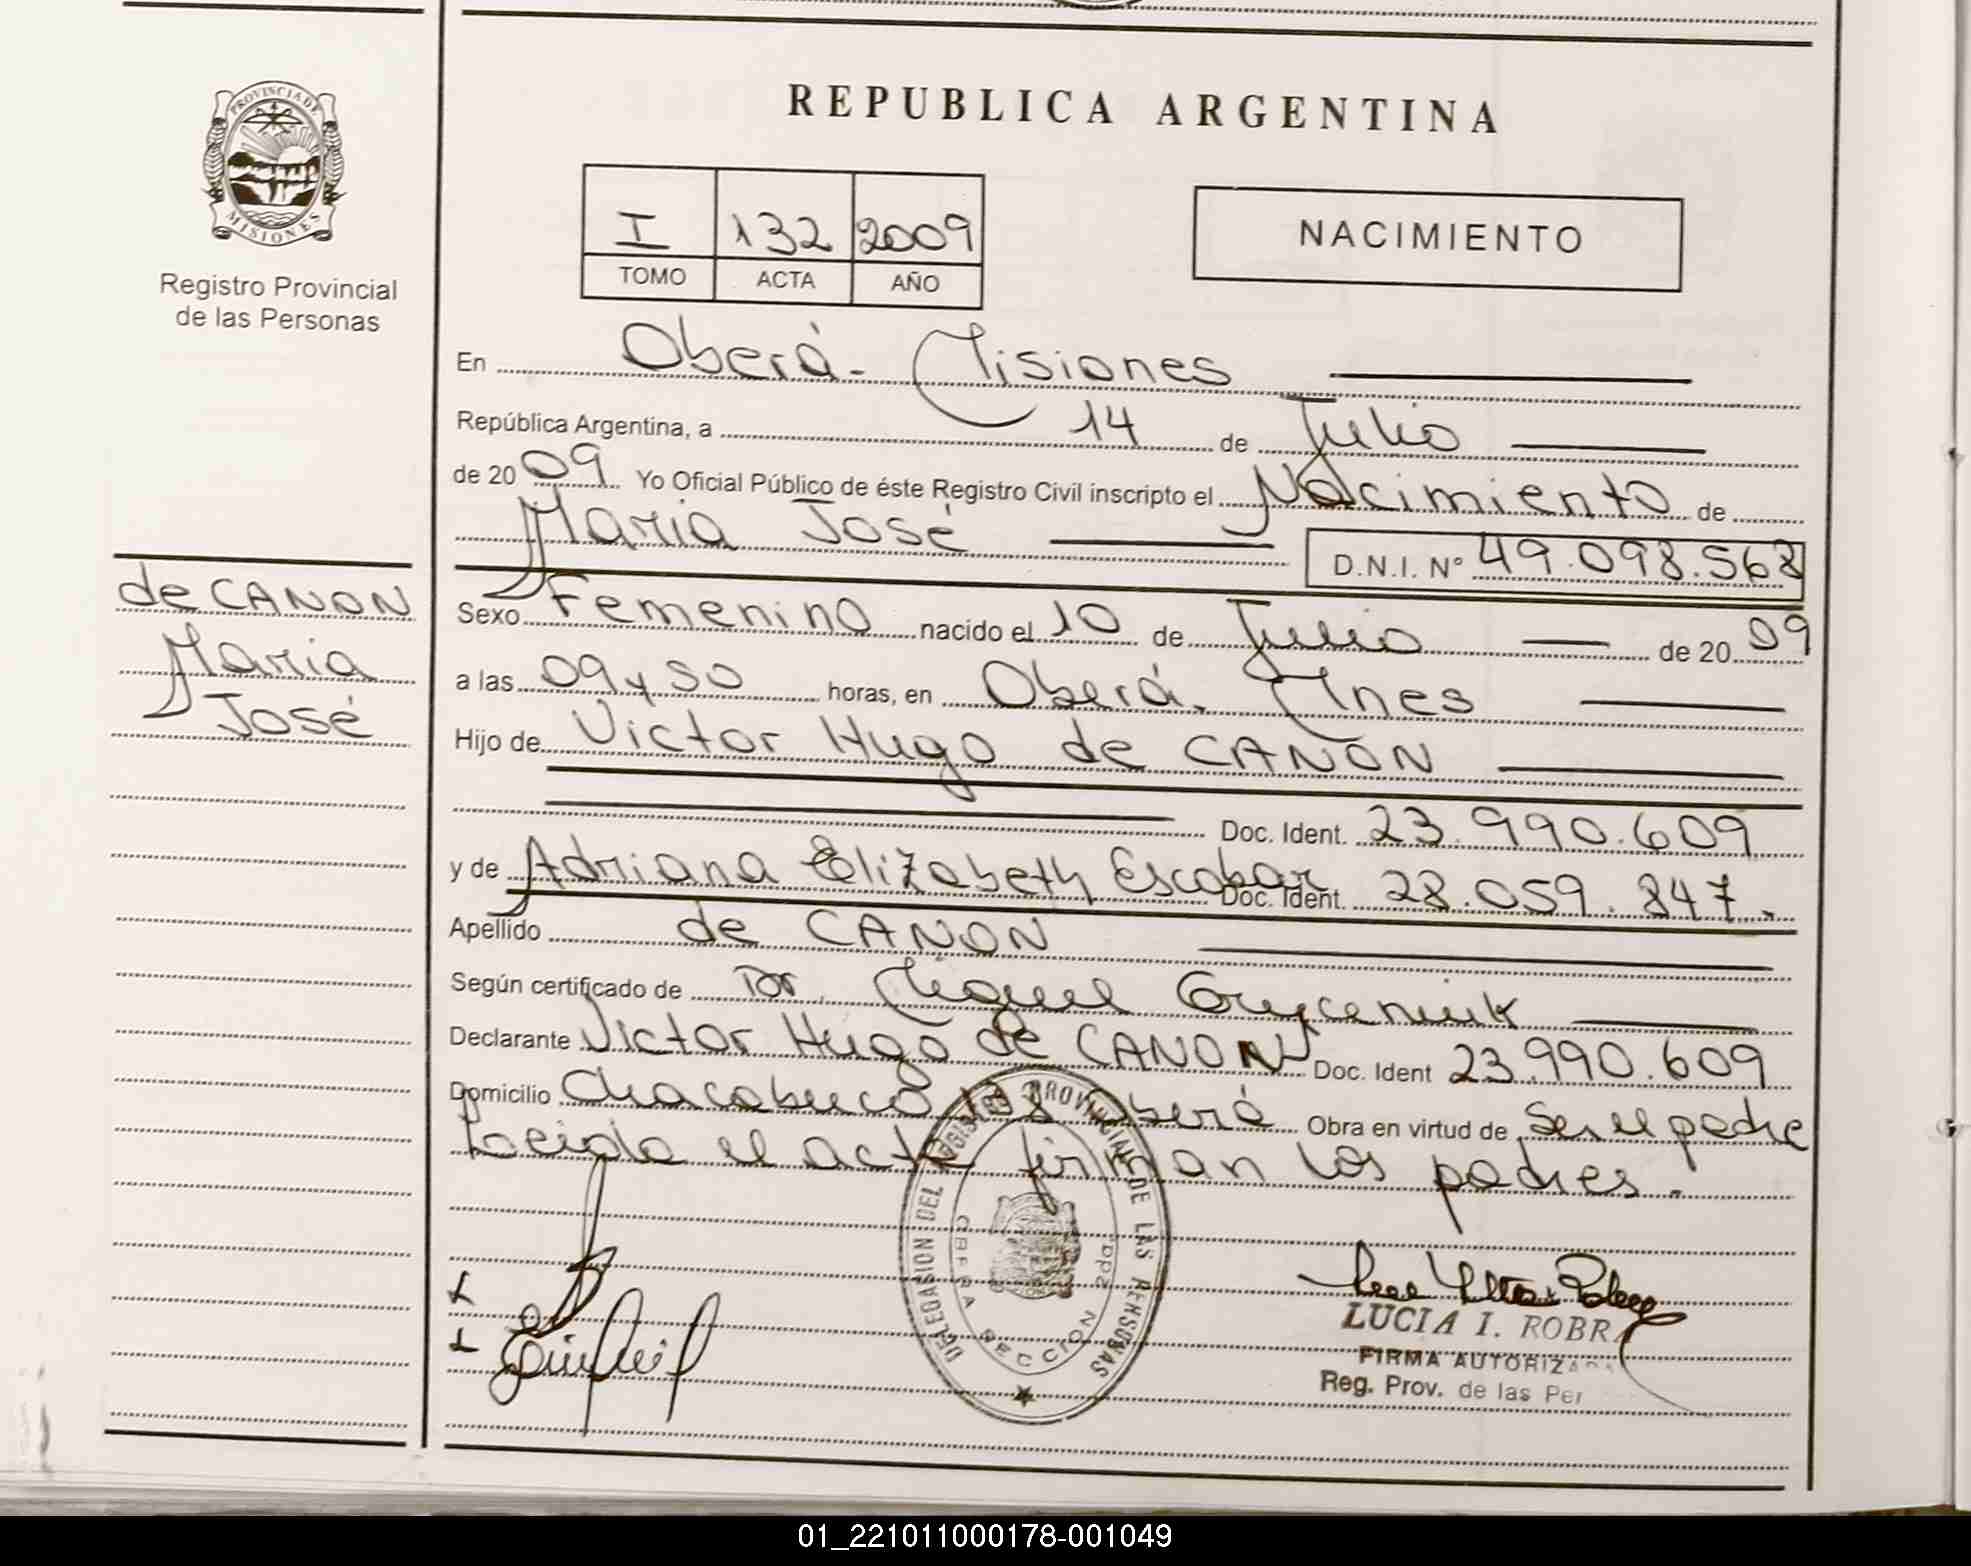 PROVINCIA DE
MISIONES
Registro Provincial
de las Personas
REPUBLICA ARGENTINA
I 132 2009
TOMO ACTA AÑO
NACIMIENTO
En Oberá - Misiones
República Argentina, a 14 de Julio
de 20 09 Yo Oficial Público de éste Registro Civil inscripto el Nacimiento de
María José D.N.I. Nº 49.098.568
de CANON
María
José
Sexo Femenino nacido el 10 de Julio de 20 09
a las 09 y 50 horas, en Oberá. Mnes
Hijo de Victor Hugo de CANON
Doc. Ident. 23.990.609
y de Adriana Elizabeth Escobar Doc. Ident. 28.059.847.
Apellido de CANON
Según certificado de Dr. Miguel
Declarante Victor Hugo de CANON Doc. Ident 23.990.609
Domicilio Chacabuco Oberá Obra en virtud de Ser el padre
Leida el acta firman los padres.
DELEGASION DEL REGISTRO PROVINCIAL DE LAS PERSONAS
OBERA SECCION 2da.
LUCIA I. ROBRA
FIRMA AUTORIZADA
Reg. Prov. de las Per
01_221011000178-001049